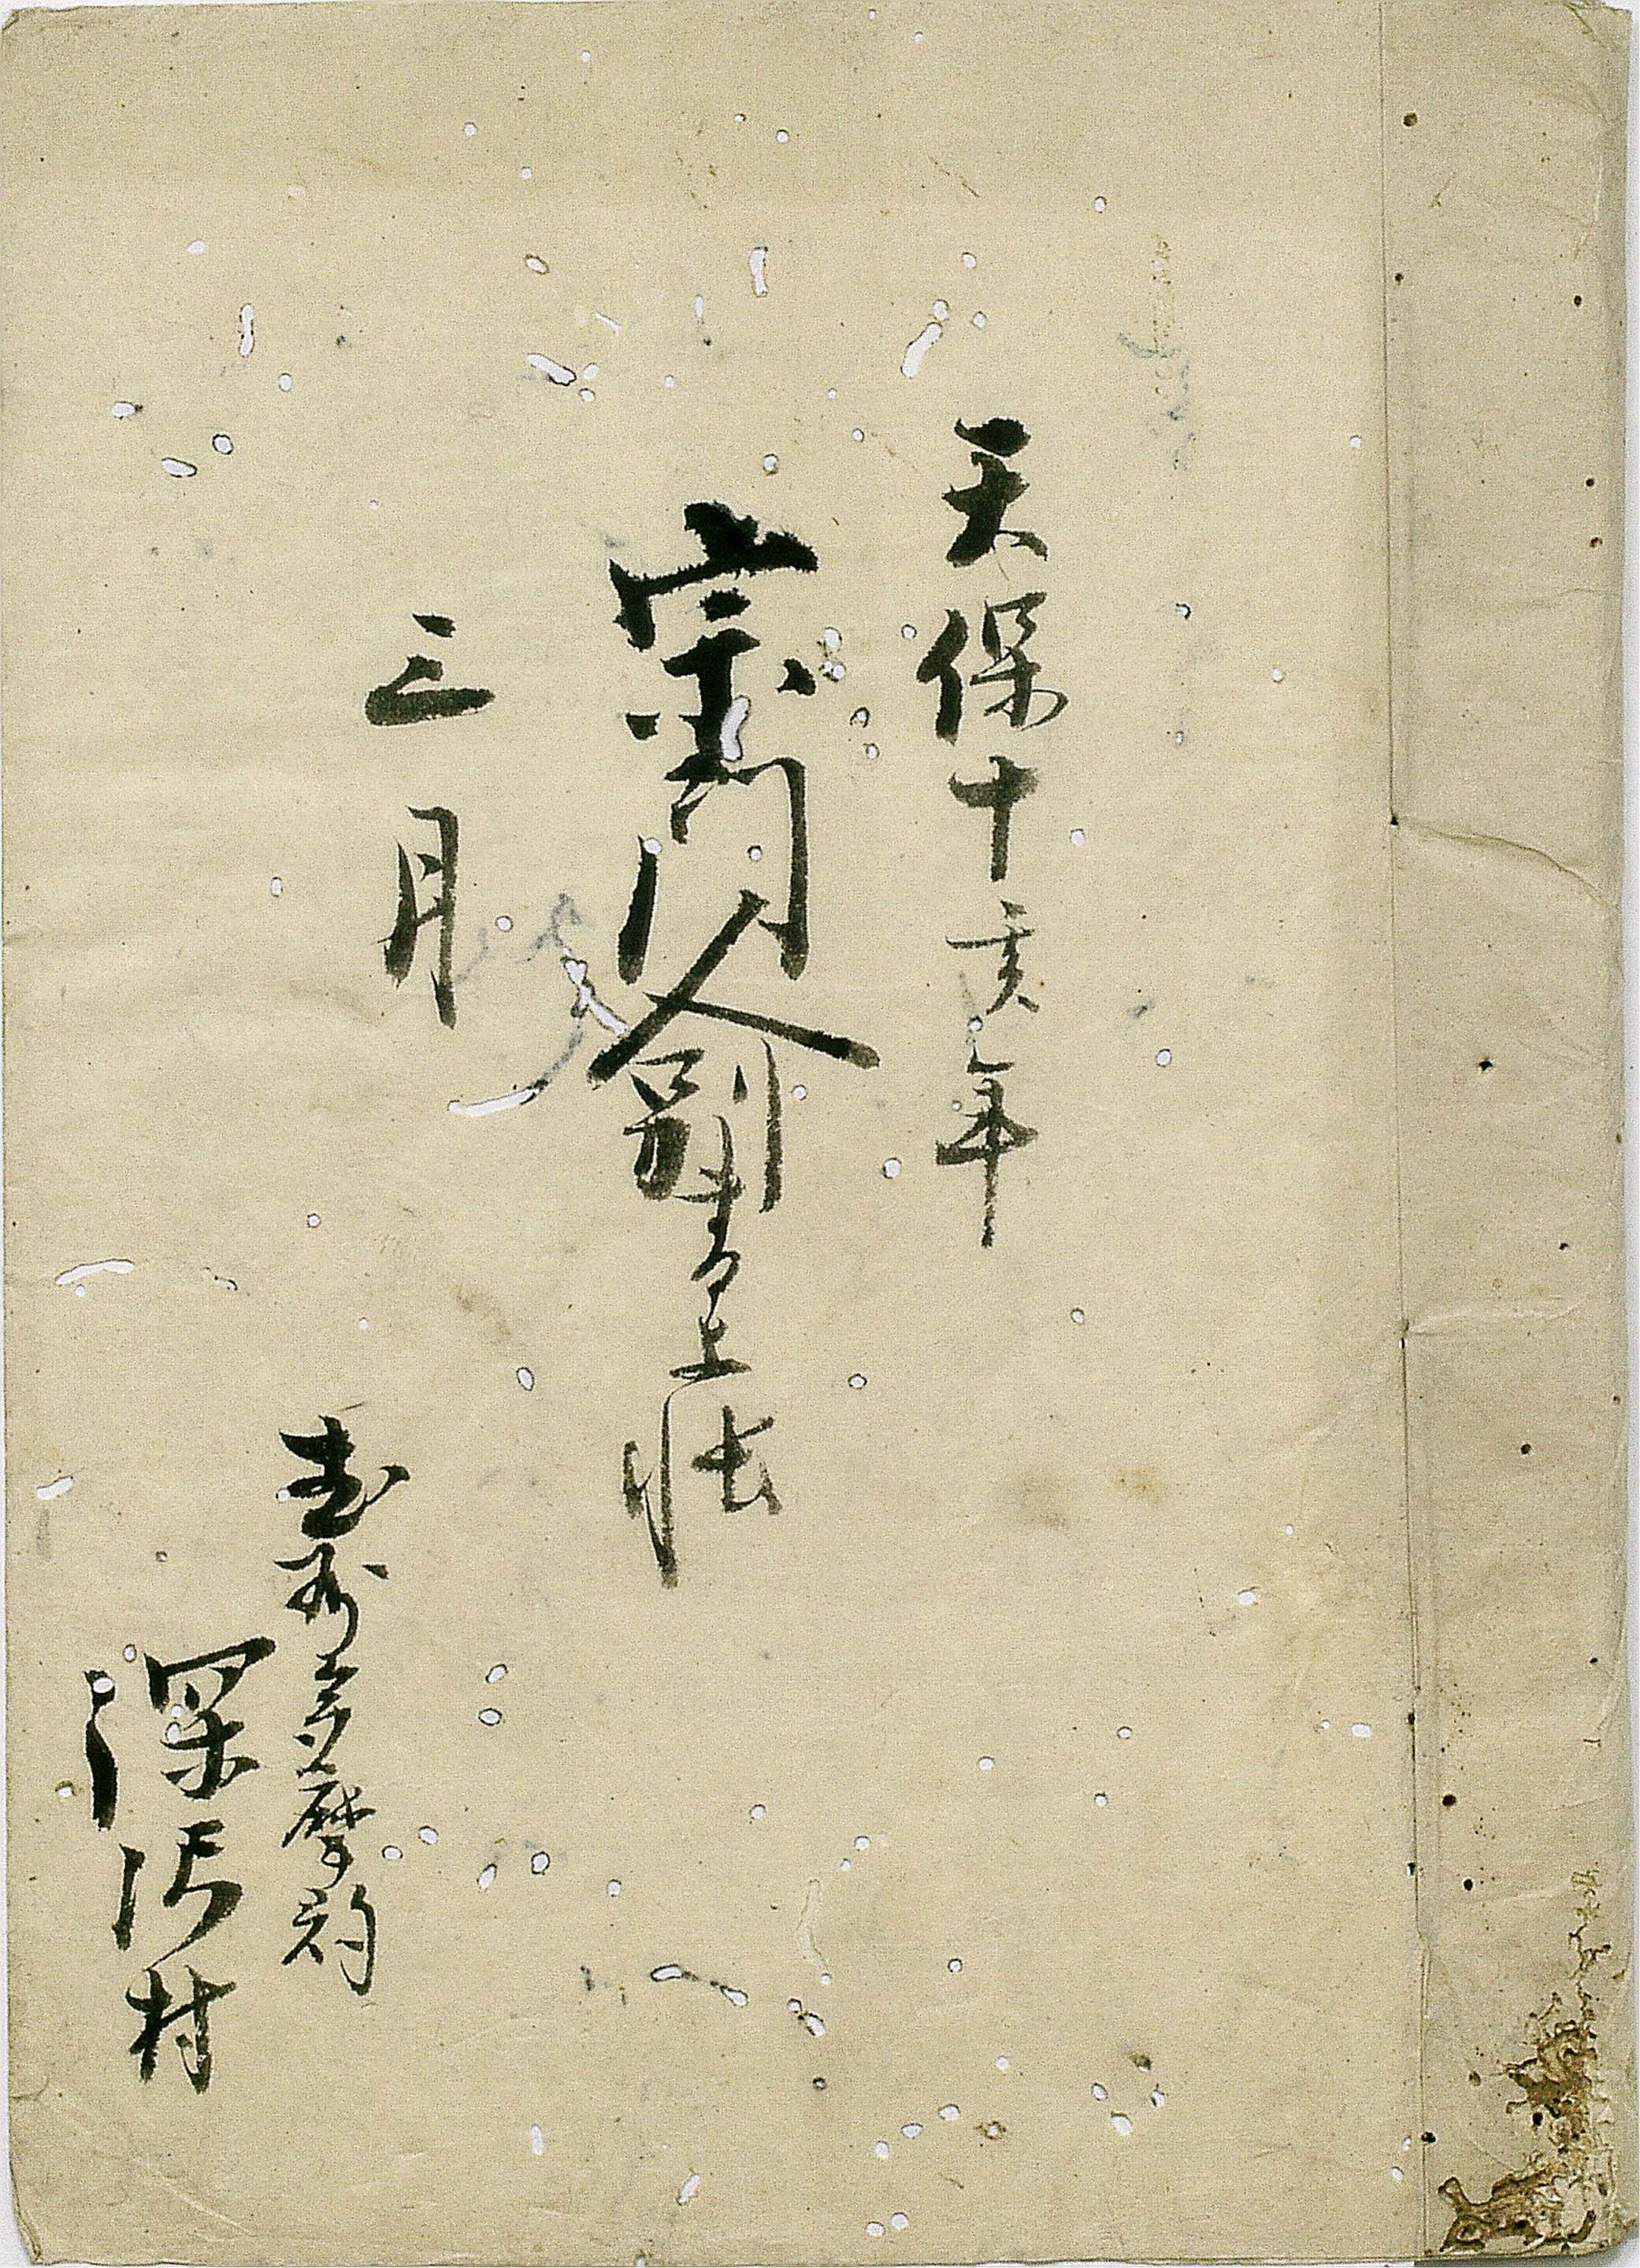 天保十亥年
宗門人別書上帳
三月
武州多摩郡
深沢村